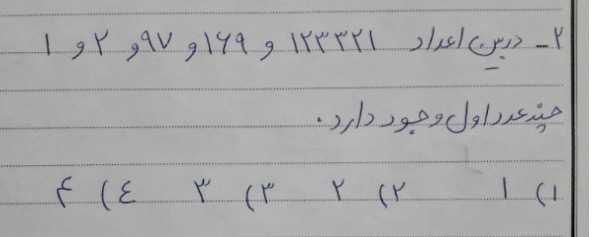 ۲ـ دربین اعداد ۱۲۳۳۲۱ و ۱۶۹ و ۹۷ و ۲ و ۱
چند عدد اول وجود دارد.
۱) ۱ ۲) ۲ ۳) ۳ ٤) ۴